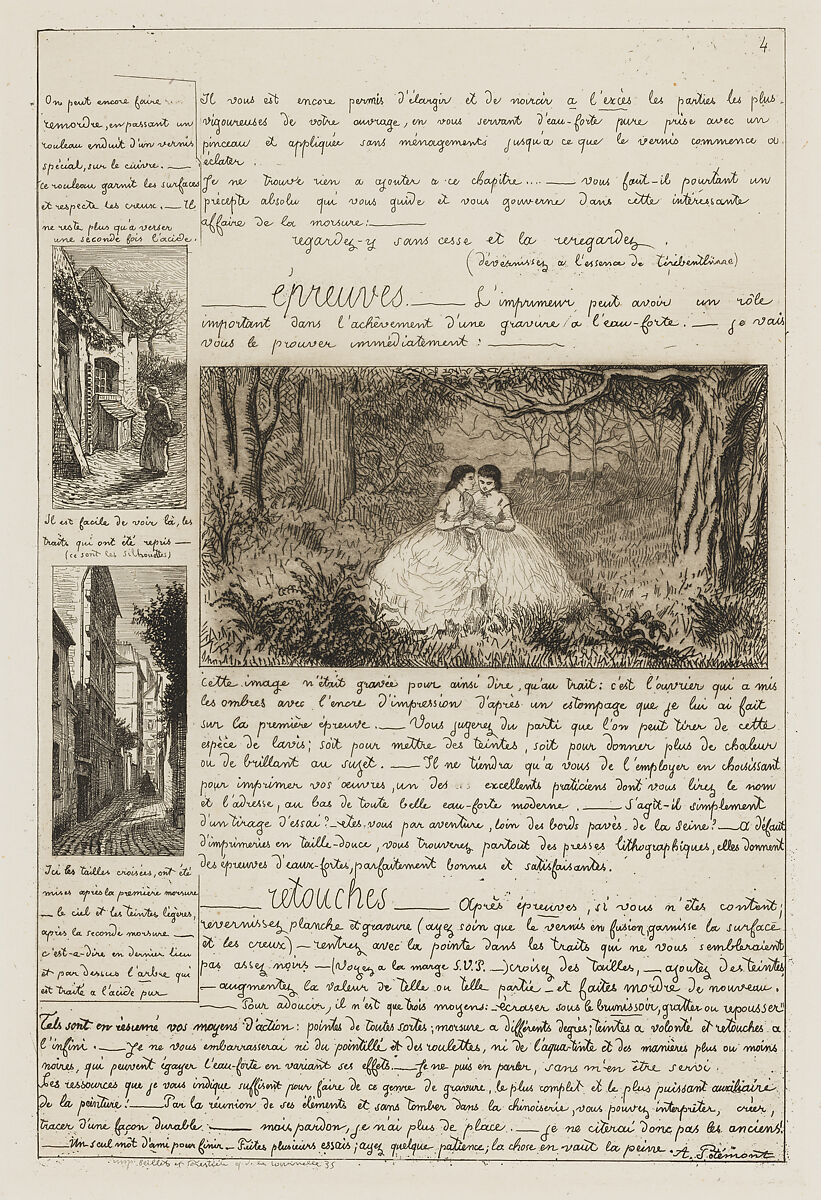 4
On peut encore faire
remordre, en passant un
rouleau enduit d'un vernis
spécial, sur le cuivre. —
ce rouleau garnit les surfaces
et respecte les creux. — Il
ne reste plus qu'a verser
une seconde fois l'acide.
Il est facile de voir là, les
traits qui ont été repris —
(ce sont les silhouettes)
Ici les tailles croisées, ont été
mises après la première morsure
— le ciel et les teintes légères,
après la seconde morsure —
c'est-a-dire en dernier lieu
et par dessus l'arbre qui
est traité a l'acide pur
Il vous est encore permis d'élargir et de noircir a l'excès les parties les plus
vigoureuses de votre ouvrage, en vous servant d'eau-forte pure prise avec un
pinceau et appliquée sans ménagements jusqu'a ce que le vernis commence a
éclater.
Je ne trouve rien a ajouter a ce chapitre.... — vous faut-il pourtant un
précepte absolu qui vous guide et vous gouverne dans cette intéressante
affaire de la morsure: —
regardez-y sans cesse et la reregardez.
(dévernissez a l'essence de térébenthine)
— épreuves. — L'imprimeur peut avoir un rôle
important dans l'achèvement d'une gravure a l'eau-forte. — je vais
vous le prouver immédiatement : —
cette image n'était gravée pour ainsi dire, qu'au trait: c'est l'ouvrier qui a mis
les ombres avec l'encre d'impression d'après un estompage que je lui ai fait
sur la première épreuve. — Vous jugerez du parti que l'on peut tirer de cette
espèce de lavis; soit pour mettre des teintes, soit pour donner plus de chaleur
ou de brillant au sujet. — Il ne tiendra qu'a vous de l'employer en choisissant
pour imprimer vos œuvres, un des excellents praticiens dont vous lirez le nom
et l'adresse, au bas de toute belle eau-forte moderne. — S'agit-il simplement
d'un tirage d'essai? — etes-vous par aventure, loin des bords pavés de la Seine? — a défaut
d'imprimeries en taille-douce, vous trouverez partout des presses lithographiques, elles donnent
des épreuves d'eaux-fortes, parfaitement bonnes et satisfaisantes.
— retouches — Après épreuves, si vous n'êtes content;
revernissez planche et gravure (ayez soin que le vernis en fusion garnisse la surface
et les creux) — rentrez avec la pointe dans les traits qui ne vous sembleraient
pas assez noirs — (Voyez a la marge S.V.P. —) croisez des tailles, — ajoutez des teintes
— augmentez la valeur de telle ou telle partie — et faites mordre de nouveau.
— Pour adoucir, il n'est que trois moyens: — écraser sous le brunissoir, gratter ou repousser
Tels sont en résumé vos moyens d'action : pointes de toutes sortes; morsure a différents degrés; teintes a volonté et retouches a
l'infini. — Je ne vous embarrasserai ni du pointillé et des roulettes, ni de l'aqua-tinte et des manières plus ou moins
noires, qui peuvent égayer l'eau-forte en variant ses effets. — Je ne puis en parler, sans m'en être servi.
Les ressources que je vous indique suffisent pour faire de ce genre de gravure, le plus complet et le plus puissant auxiliaire
de la peinture! — Par la réunion de ses éléments et sans tomber dans la chinoiserie, vous pouvez interpréter, créer,
tracer d'une façon durable. — mais pardon, je n'ai plus de place. — je ne citerai donc pas les anciens!
— Un seul mot d'ami pour finir. — Faites plusieurs essais; ayez quelque patience; la chose en vaut la peine. A. Potémont